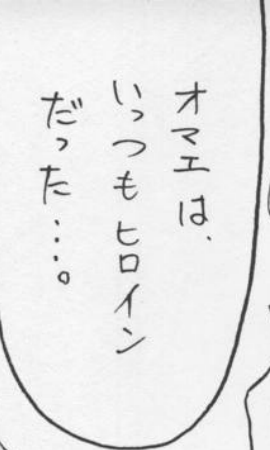 オマエは、
いっつもヒロイン
だった…。